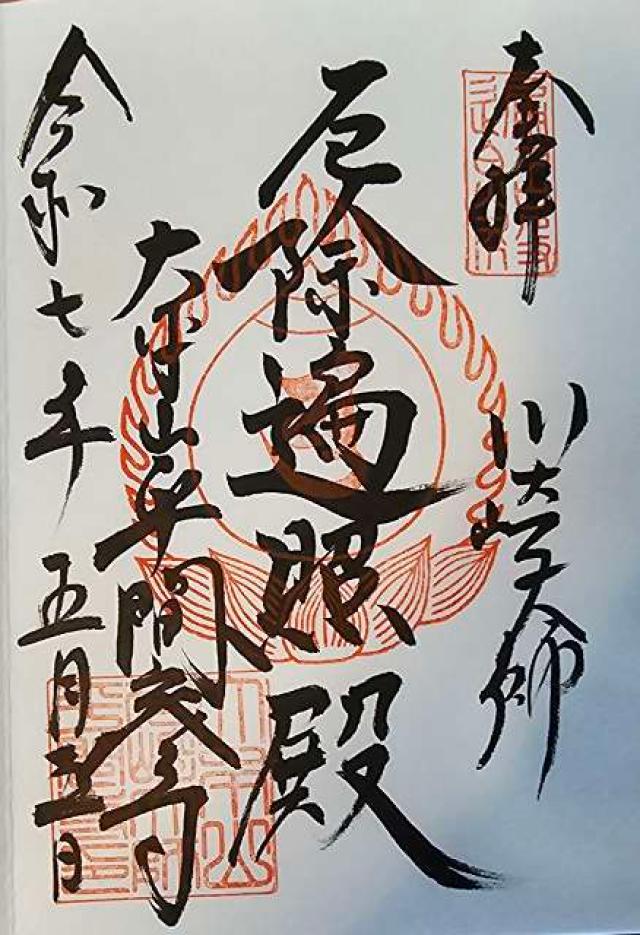 奉拝
川崎大師
厄除遍照殿
大本山平間寺
令和七年五月五日